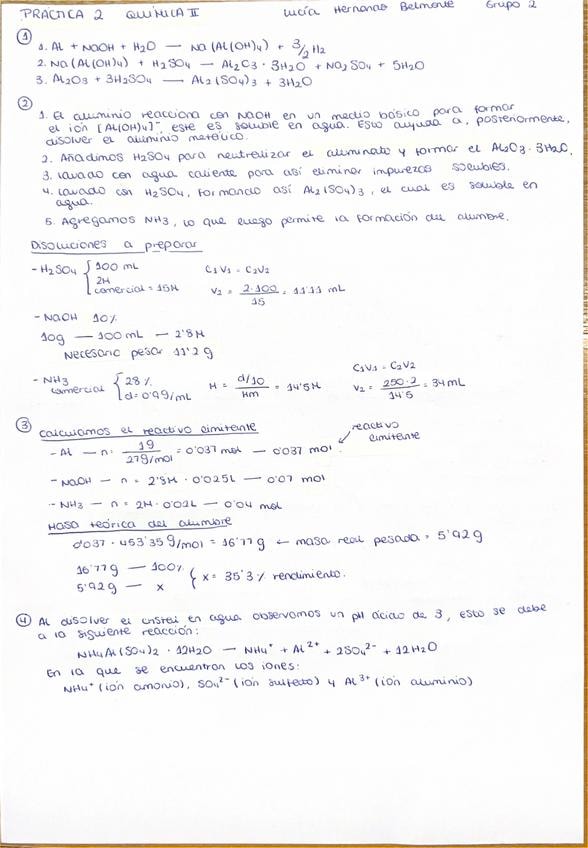 PRÁCTICA 2 QUÍMICA II Lucía Hernando Belmonte Grupo 2
① 1. Al + NaOH + H2O — Na(Al(OH)4) + 3/2 H2
2. Na(Al(OH)4) + H2SO4 — Al2O3 · 3H2O + Na2SO4 + 5H2O
3. Al2O3 + 3H2SO4 — Al2(SO4)3 + 3H2O
② 1. El aluminio reacciona con NaOH en un medio básico para formar
el ión [Al(OH)4]⁻, este es soluble en agua. Esto ayuda a, posteriormente,
disolver el aluminio metálico.
2. Añadimos H2SO4 para neutralizar el aluminato y formar el Al2O3 · 3H2O.
3. Lavado con agua caliente para así eliminar impurezas solubles.
4. Lavado con H2SO4, formando así Al2(SO4)3, el cual es soluble en
agua.
5. Agregamos NH3, lo que luego permite la formación del alumbre.
Disoluciones a preparar
- H2SO4 { 100 mL
2M
comercial = 15M
C1V1 = C2V2
V2 = 2·100/15 = 11'11 mL
- NaOH 10%
10g — 100mL — 2'8M
Necesario pesar 11'2 g
- NH3 comercial { 28%
d = 0'99/mL
M = d/10/Mm = 14'5M
C1V1 = C2V2
V2 = 250·2/14'5 = 34mL
③ Calculamos el reactivo limitante
- Al — n = 1g/27g/mol = 0'037 mol — 0'037 mol ← reactivo limitante
- NaOH — n = 2'8M · 0'025L — 0'07 mol
- NH3 — n = 2M · 0'02L — 0'04 mol
Masa teórica del alumbre
0'037 · 453'35 g/mol = 16'77 g ← masa real pesada = 5'92g
16'77 g — 100%
5'92 g — x } x = 35'3% rendimiento.
④ Al disolver el cristal en agua observamos un pH ácido de 3, esto se debe
a la siguiente reacción:
NH4Al(SO4)2 · 12H2O — NH4⁺ + Al²⁺ + 2SO4²⁻ + 12H2O
En la que se encuentran los iones:
NH4⁺ (ión amonio), SO4²⁻ (ión sulfato) y Al³⁺ (ión aluminio)